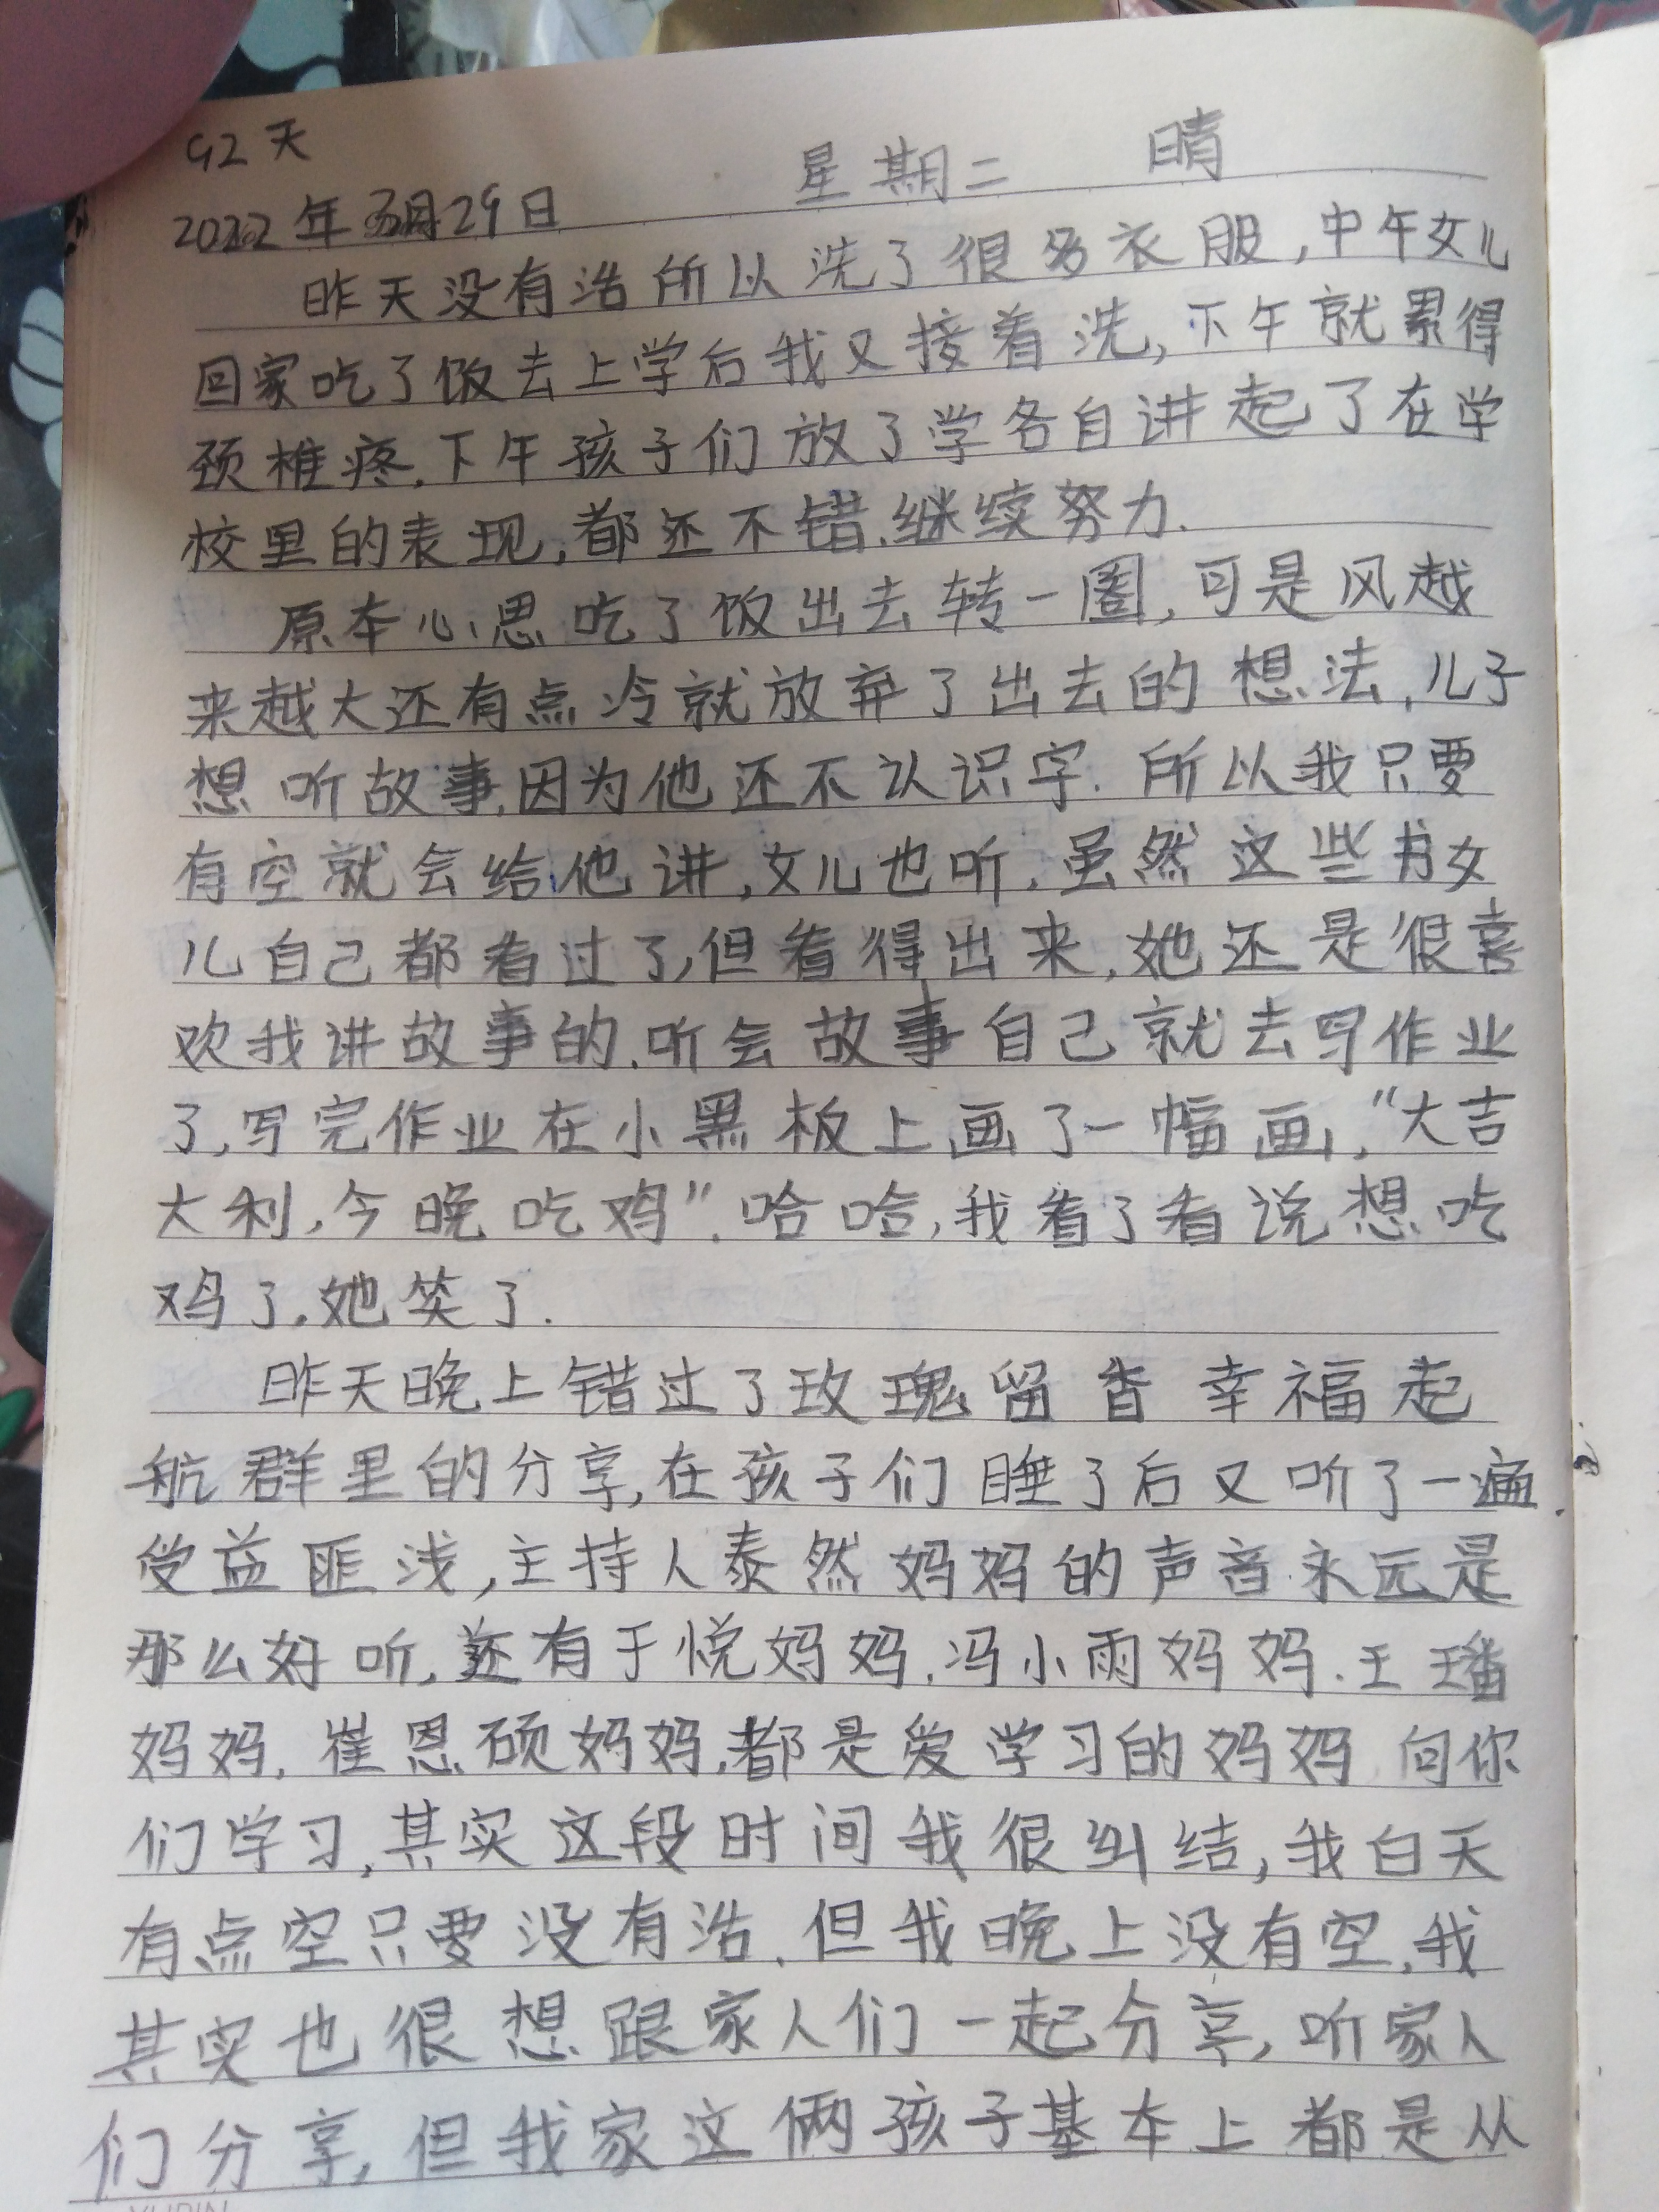 92天
星期二 晴
2022年3月29日
昨天没有活所以洗了很多衣服,中午女儿
回家吃了饭去上学后我又接着洗,下午就累得
颈椎疼.下午孩子们放了学各自讲起了在学
校里的表现,都还不错.继续努力.
原本心思吃了饭出去转一圈,可是风越
来越大还有点冷就放弃了出去的想法,儿子
想听故事,因为他还不认识字.所以我只要
有空就会给他讲,女儿也听.虽然这些书女
儿自己都看过了,但看得出来,她还是很喜
欢我讲故事的.听会故事自己就去写作业
了,写完作业在小黑板上画了一幅画,“大吉
大利,今晚吃鸡”.哈哈,我看了看说想吃
鸡了,她笑了.
昨天晚上错过了玫瑰留香幸福起
航群里的分享,在孩子们睡了后又听了一遍.
受益匪浅,主持人泰然妈妈的声音永远是
那么好听,还有于悦妈妈.冯小雨妈妈.王璠
妈妈.崔恩硕妈妈,都是爱学习的妈妈 向你
们学习,其实这段时间我很纠结,我白天
有点空只要没有活.但我晚上没有空,我
其实也很想跟家人们一起分享,听家人
们分享,但我家这俩孩子基本上都是从